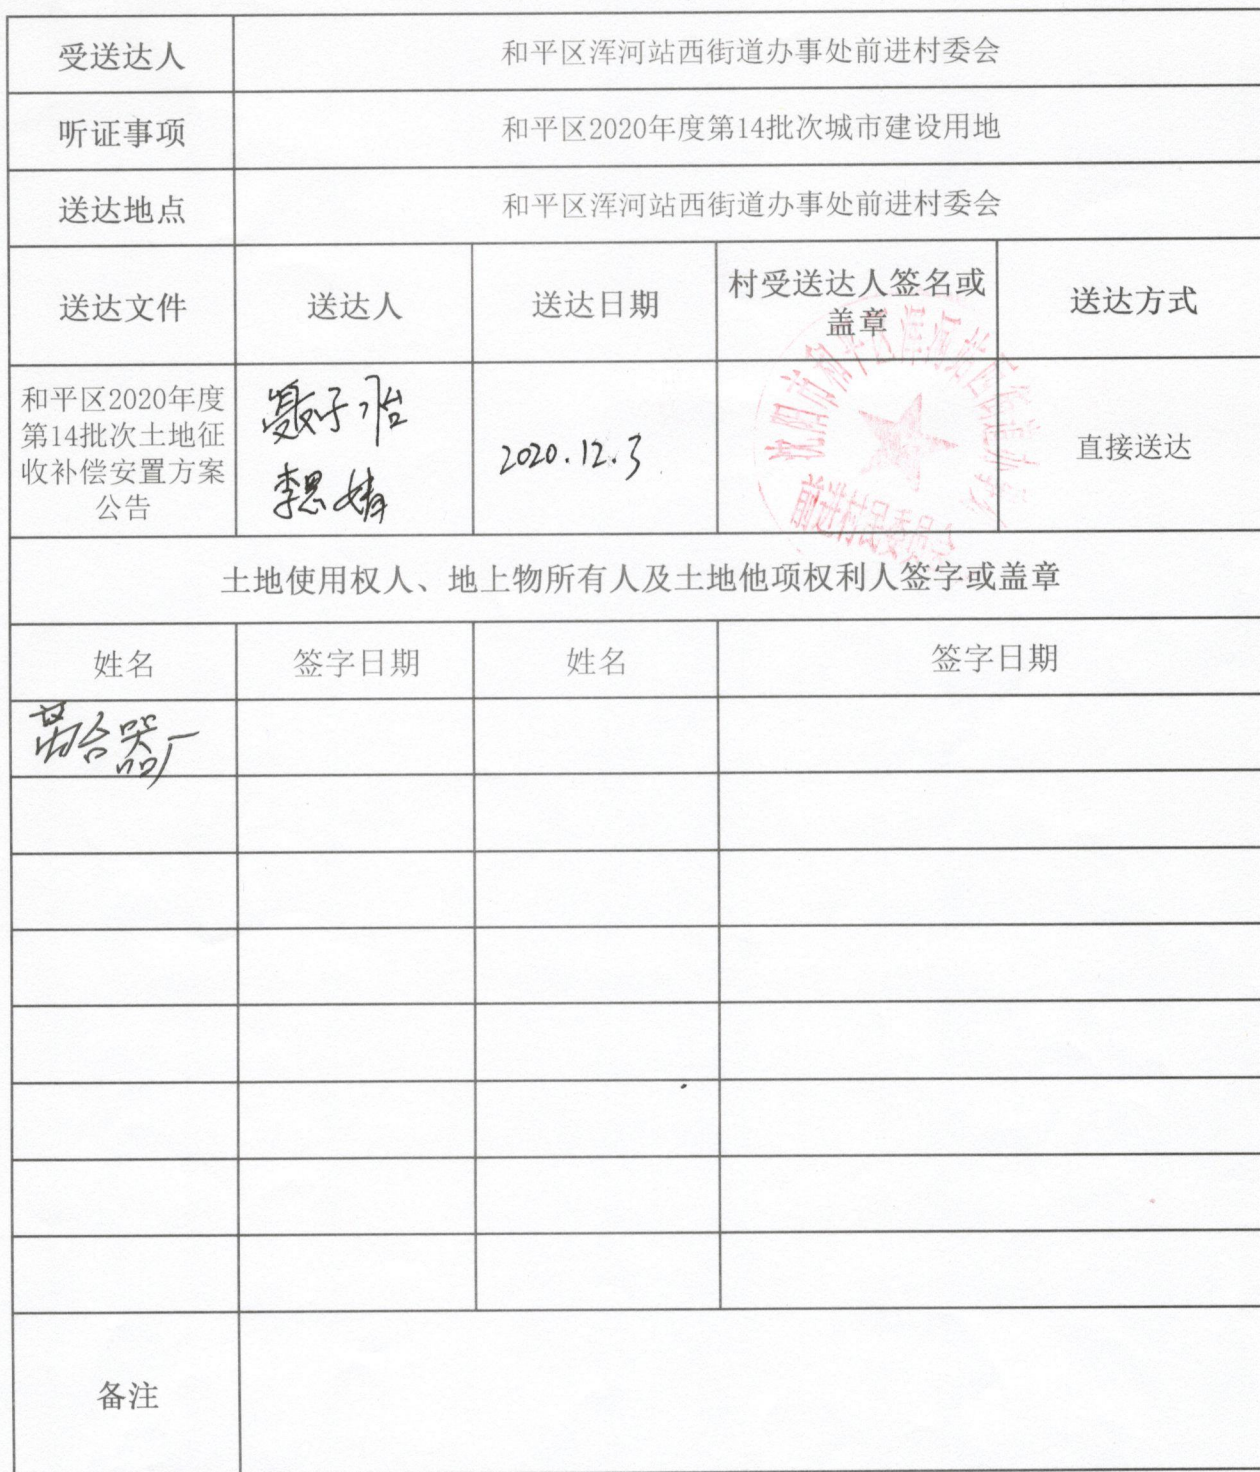 受送达人 和平区浑河站西街道办事处前进村委会
听证事项 和平区2020年度第14批次城市建设用地
送达地点 和平区浑河站西街道办事处前进村委会
送达文件 送达人 送达日期 村受送达人签名或
盖章 送达方式
和平区2020年度
第14批次土地征
收补偿安置方案
公告
聂子怡
李思婧
2020.12.3
沈阳市和平区浑河站西街道办事处
前进村民委员会
直接送达
土地使用权人、地上物所有人及土地他项权利人签字或盖章
姓名 签字日期 姓名 签字日期
合器厂
备注